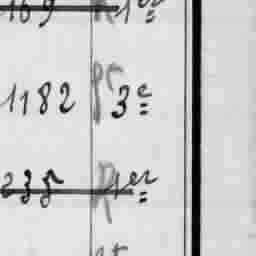 169 R 1er
1182 pr 3e
235 R 1er